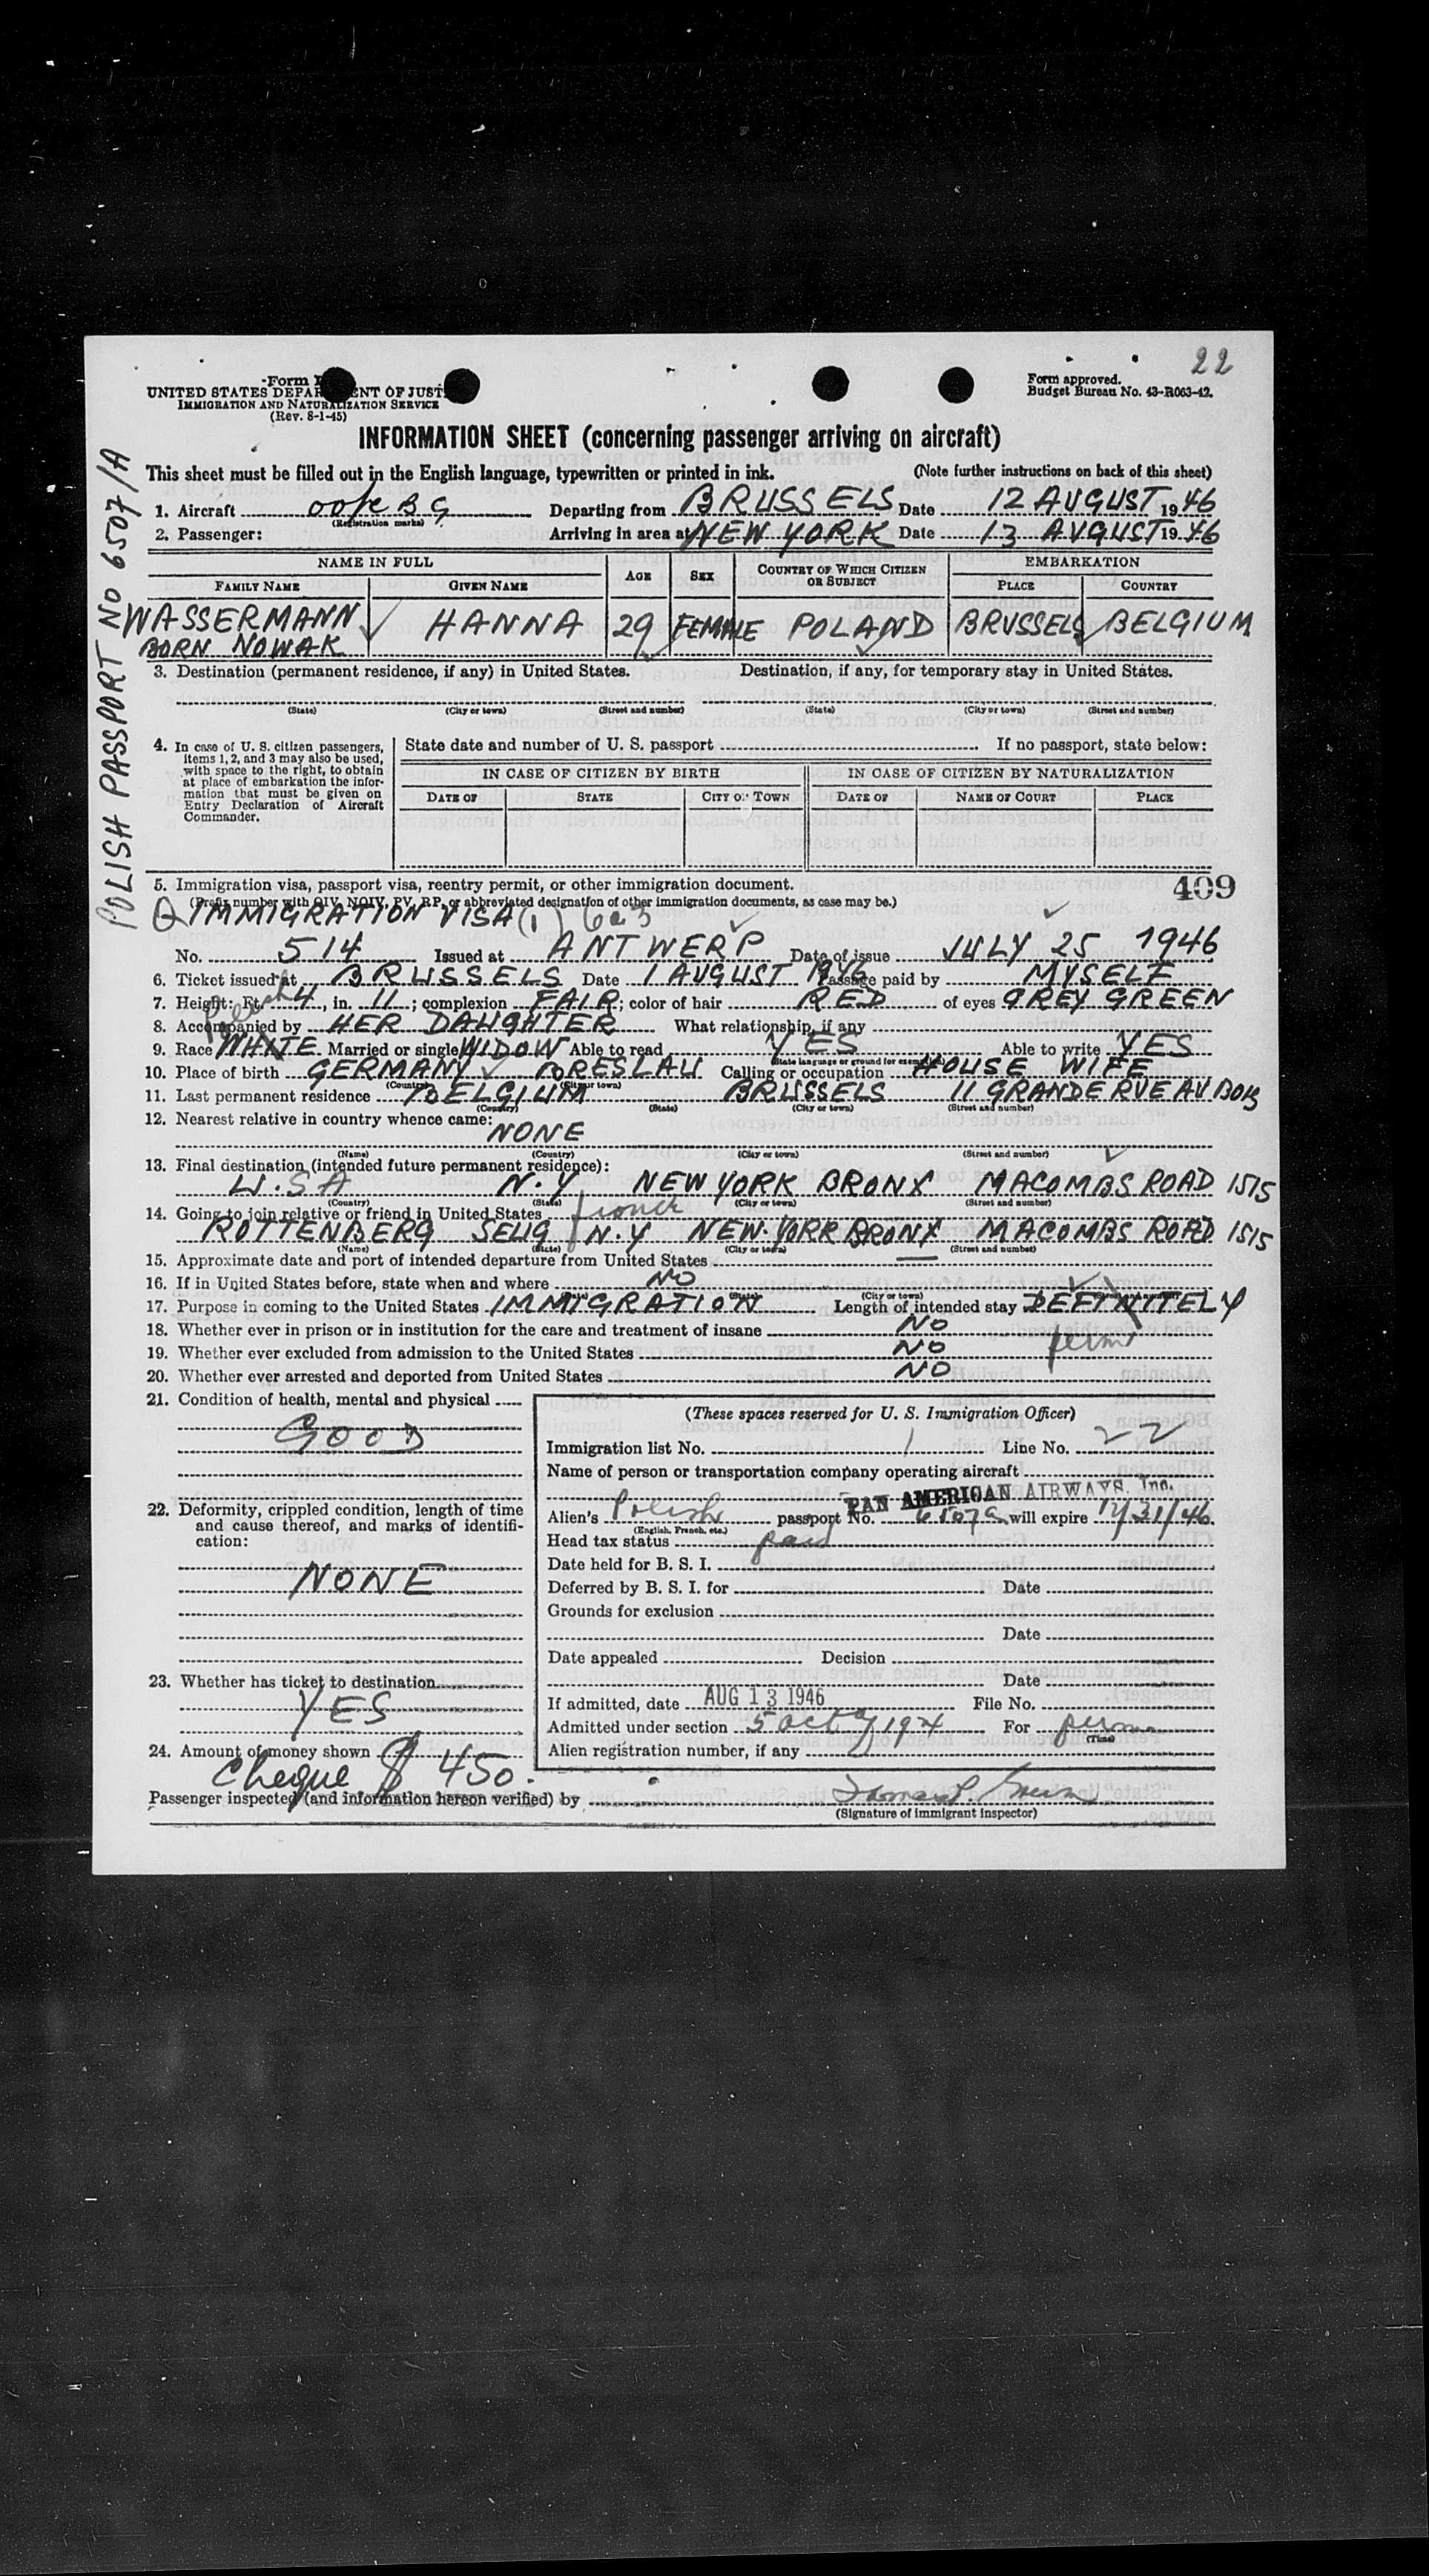 22
Form I
UNITED STATES DEPAR ENT OF JUST
IMMIGRATION AND NATURALIZATION SERVICE
(Rev. 8-1-45)
Form approved.
Budget Bureau No. 43-R063-42.
INFORMATION SHEET (concerning passenger arriving on aircraft)
This sheet must be filled out in the English language, typewritten or printed in ink. (Note further instructions on back of this sheet)
POLISH PASSPORT NO 6507/A
1. Aircraft Departing from BRUSSELS Date 12 AUGUST 1946
(Registration marks)
2. Passenger: Arriving in area at NEW YORK Date 13 AUGUST 1946
NAME IN FULL AGE SEX COUNTRY OF WHICH CITIZEN OR SUBJECT EMBARKATION
FAMILY NAME GIVEN NAME PLACE COUNTRY
WASSERMANN HANNA 29 FEMALE POLAND BRUSSELS BELGIUM
BORN NOWAK
3. Destination (permanent residence, if any) in United States. Destination, if any, for temporary stay in United States.
(State) (City or town) (Street and number) (State) (City or town) (Street and number)
4. In case of U. S. citizen passengers, items 1, 2, and 3 may also be used, with space to the right, to obtain at place of embarkation the information that must be given on Entry Declaration of Aircraft Commander.
State date and number of U. S. passport If no passport, state below:
IN CASE OF CITIZEN BY BIRTH IN CASE OF CITIZEN BY NATURALIZATION
DATE OF STATE CITY OR TOWN DATE OF NAME OF COURT PLACE
5. Immigration visa, passport visa, reentry permit, or other immigration document. 409
(Prefix number with QIV, NQIV, PV, RP, or abbreviated designation of other immigration documents, as case may be.)
Q IMMIGRATION VISA (1) 6a3
No. 514 Issued at ANTWERP Date of issue JULY 25 1946
6. Ticket issued at BRUSSELS Date 1 AUGUST 1946 Passage paid by MYSELF
7. Height: Ft. 4, in. 11; complexion FAIR; color of hair RED of eyes GREY GREEN
8. Accompanied by HER DAUGHTER What relationship, if any
9. Race WHITE Married or single WIDOW Able to read YES Able to write YES
(State language or ground for exemption)
10. Place of birth GERMANY BRESLAU Calling or occupation HOUSE WIFE
(Country) (City or town)
11. Last permanent residence BELGIUM BRUSSELS 11 GRANDE RUE AU BOIS
(Country) (State) (City or town) (Street and number)
12. Nearest relative in country whence came:
NONE
(Name) (Country) (City or town) (Street and number)
13. Final destination (intended future permanent residence):
U.S.A N.Y NEW YORK BRONX MACOMBS ROAD 1515
(Country) (State) (City or town) (Street and number)
14. Going to join relative or friend in United States
ROTTENBERG SELIG N.Y NEW-YORK BRONX MACOMBS ROAD 1515
(Name) (State) (City or town) (Street and number)
15. Approximate date and port of intended departure from United States —
16. If in United States before, state when and where NO
17. Purpose in coming to the United States IMMIGRATION Length of intended stay DEFINITELY
18. Whether ever in prison or in institution for the care and treatment of insane NO
perm
19. Whether ever excluded from admission to the United States NO
20. Whether ever arrested and deported from United States NO
21. Condition of health, mental and physical
GOOD
22. Deformity, crippled condition, length of time and cause thereof, and marks of identification:
NONE
23. Whether has ticket to destination
YES
24. Amount of money shown
Cheque $ 450.
(These spaces reserved for U. S. Immigration Officer)
Immigration list No. 1 Line No. 22
Name of person or transportation company operating aircraft
PAN AMERICAN AIRWAYS, Inc.
Alien's Polish passport No. 6507a will expire 12/31/46.
(English, French, etc.)
Head tax status paid
Date held for B. S. I.
Deferred by B. S. I. for Date
Grounds for exclusion
Date
Date appealed Decision
Date
If admitted, date AUG 13 1946 File No.
Admitted under section 5 act of 1924 For perm
(Time)
Alien registration number, if any
Passenger inspected (and information hereon verified) by
(Signature of immigrant inspector)